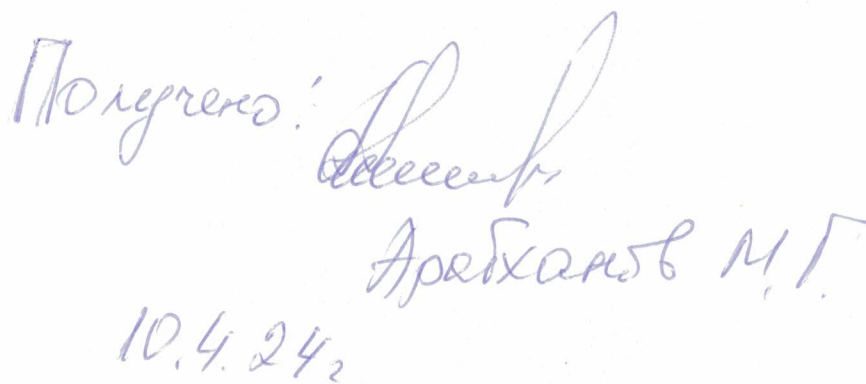 Получено:
Арабханов М.Г.
10.4.24г